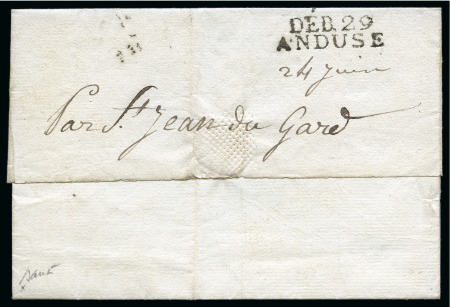 DEB. 29
ANDUSE
24 Juin
Par St Jean du Gard